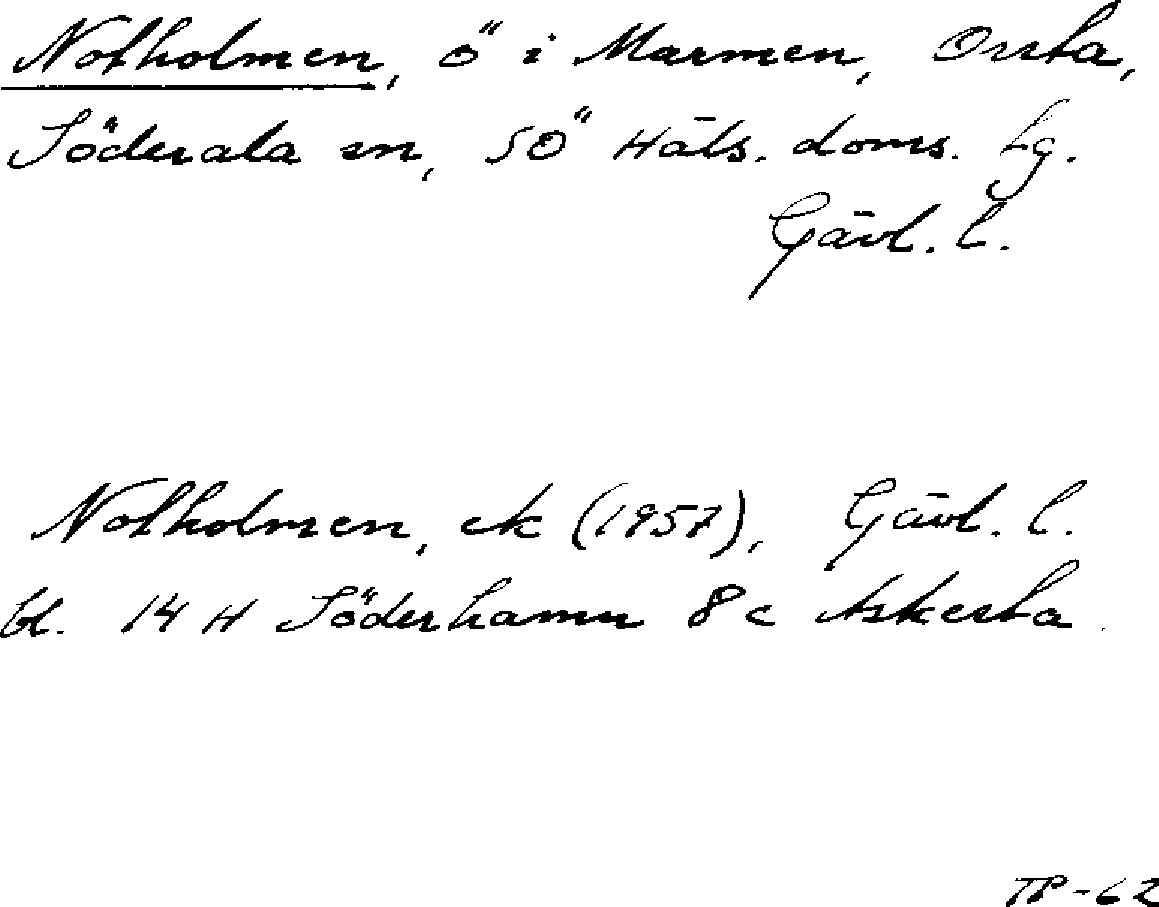 Notholmen, ö i Marmen, Orsta,
Söderala sn, SÖ Häls. doms. lg.
Gävl. l.
Notholmen, ek (1957), Gävl. l.
bl. 14 H Söderhamn 8 c Askesta
TP-62